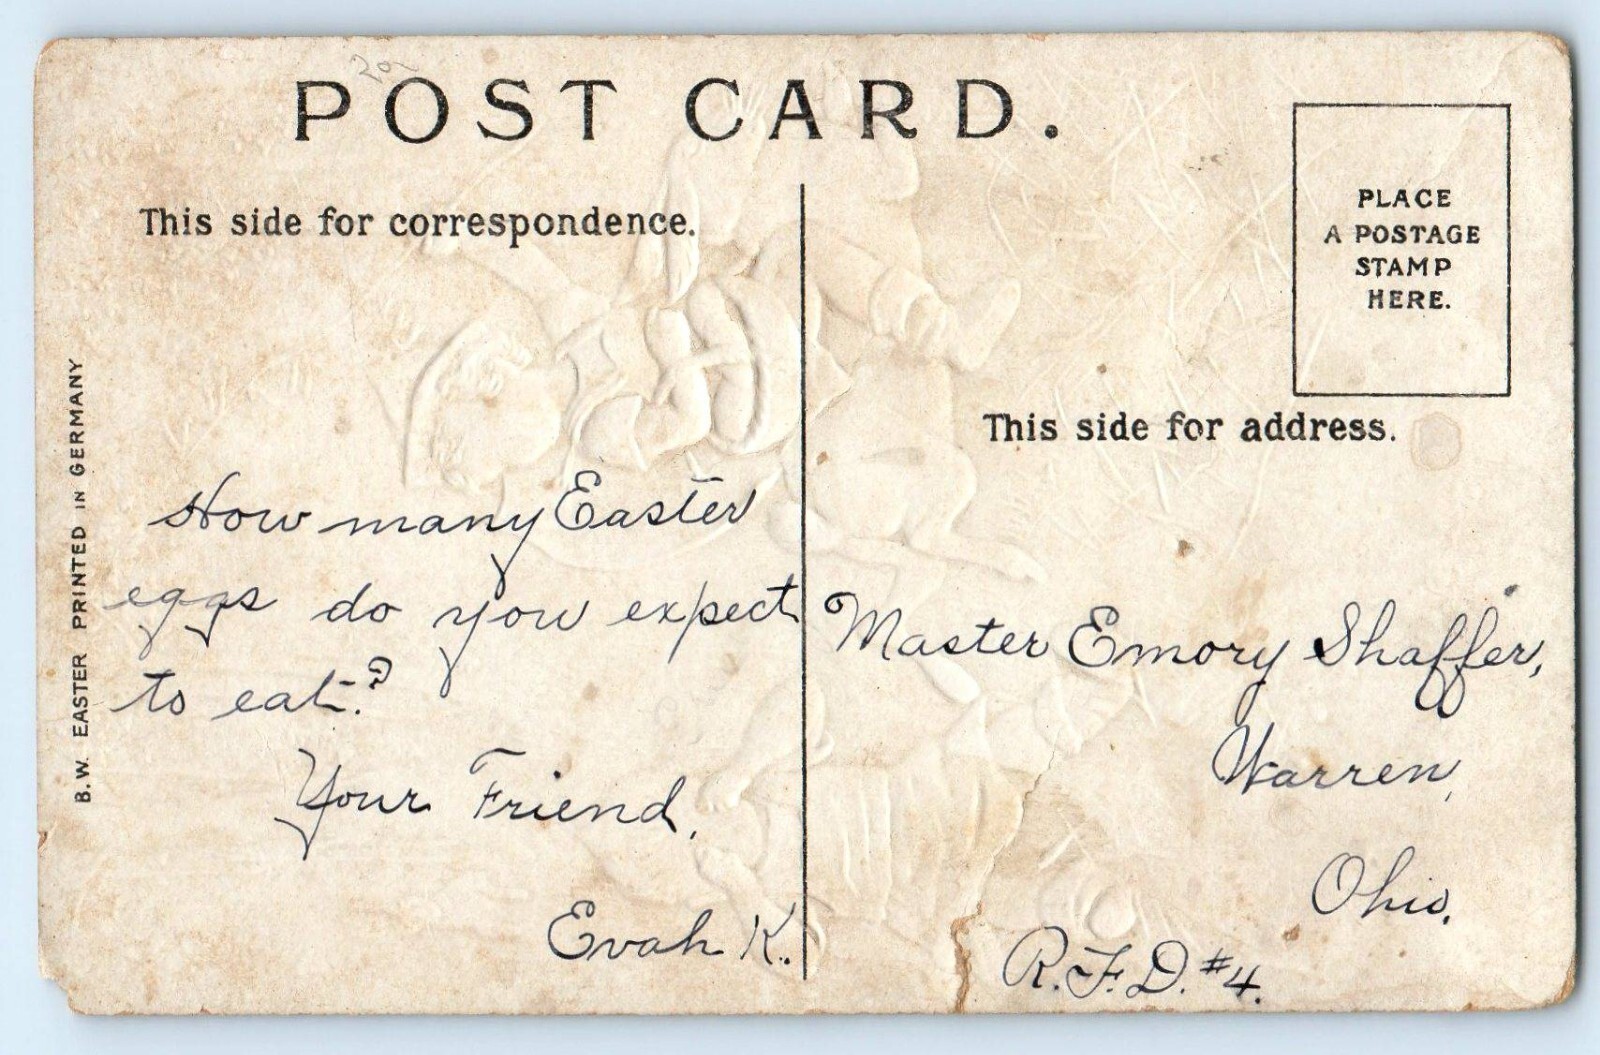 20
POST CARD.
This side for correspondence.
PLACE
A POSTAGE
STAMP
HERE.
This side for address.
B.W. EASTER PRINTED IN GERMANY
How many Easter
eggs do you expect
to eat?
Your Friend,
Evah K.
Master Emory Shaffer,
Warren,
Ohio.
R.F.D. #4.